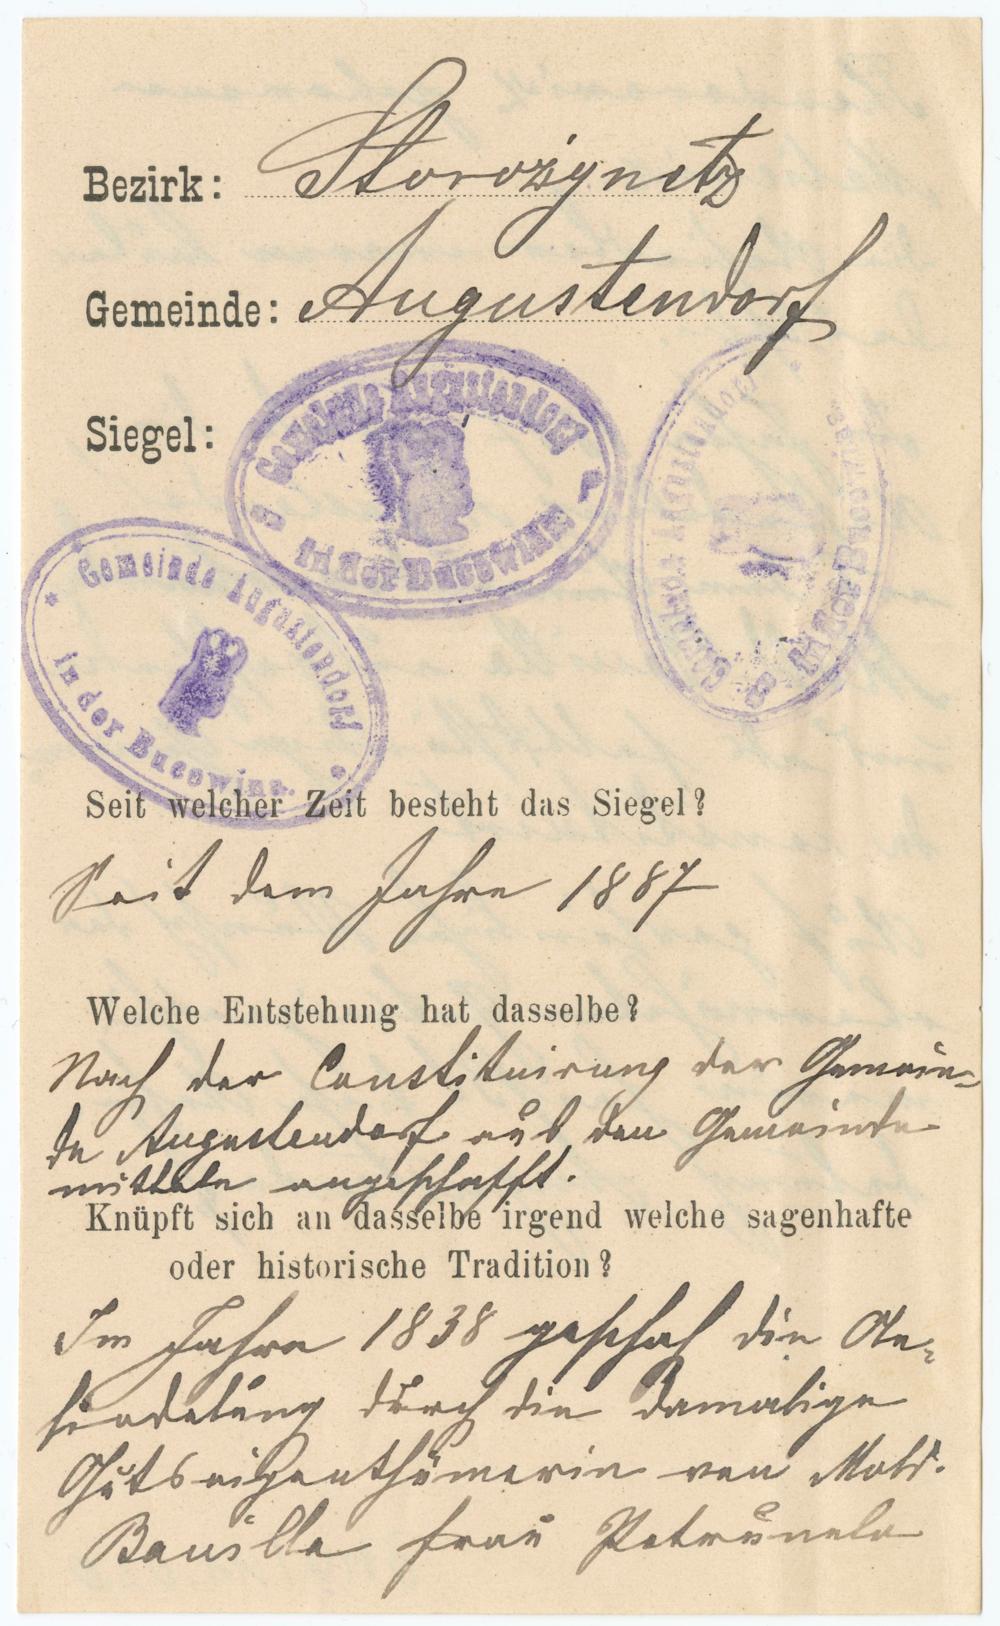 Bezirk: Storožynetz
Gemeinde: Augustendorf
Siegel:
Gemeinde Augustendorf
in der Bucowina
Gemeinde Augustendorf
in der Bucowina.
Seit welcher Zeit besteht das Siegel?
Seit dem Jahre 1887
Welche Entstehung hat dasselbe?
Nach der Constituirung der Gemein-
de Augustendorf aus den Gemeinde
mitteln angeschafft.
Knüpft sich an dasselbe irgend welche sagenhafte
oder historische Tradition?
Im Jahre 1838 geschah die An-
siedelung durch die damalige
Gutseigenthümerin von Mold.
Banilla Frau Petrunela